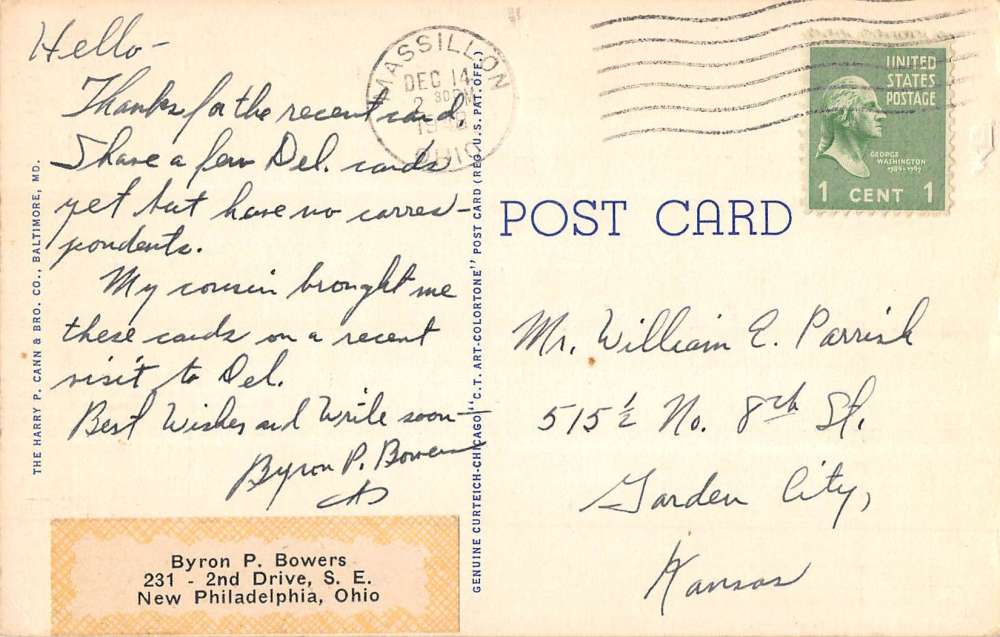 Hello -
Thanks for the recent card,
I have a few Del. cards
yet but have no corres-
pondents.
My cousin brought me
these cards on a recent
visit to Del.
Best Wishes and Write soon -
Byron P. Bowers
Byron P. Bowers
231 - 2nd Drive, S. E.
New Philadelphia, Ohio
THE HARRY P. CANN & BRO. CO., BALTIMORE, MD.
GENUINE CURTEICH-CHICAGO "C.T. ART-COLORTONE" POST CARD (REG. U.S. PAT. OFF.)
MASSILLON
DEC 14
2 30 PM
OHIO
UNITED
STATES
POSTAGE
GEORGE
WASHINGTON
1789-1797
1 CENT 1
POST CARD
Mr. William E. Parrish
515½ No. 8th St.
Garden City,
Kansas